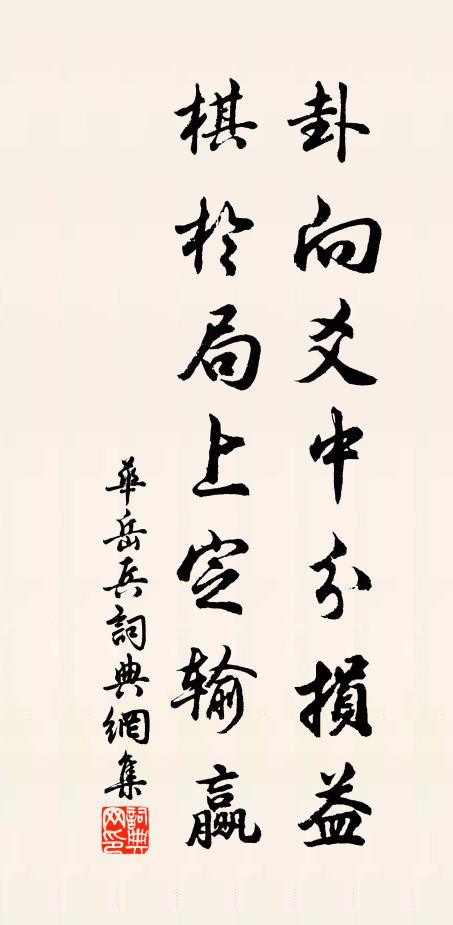 卦向爻中分損益
棋於局上定输贏
華岳兵詞典網集
詞典网印